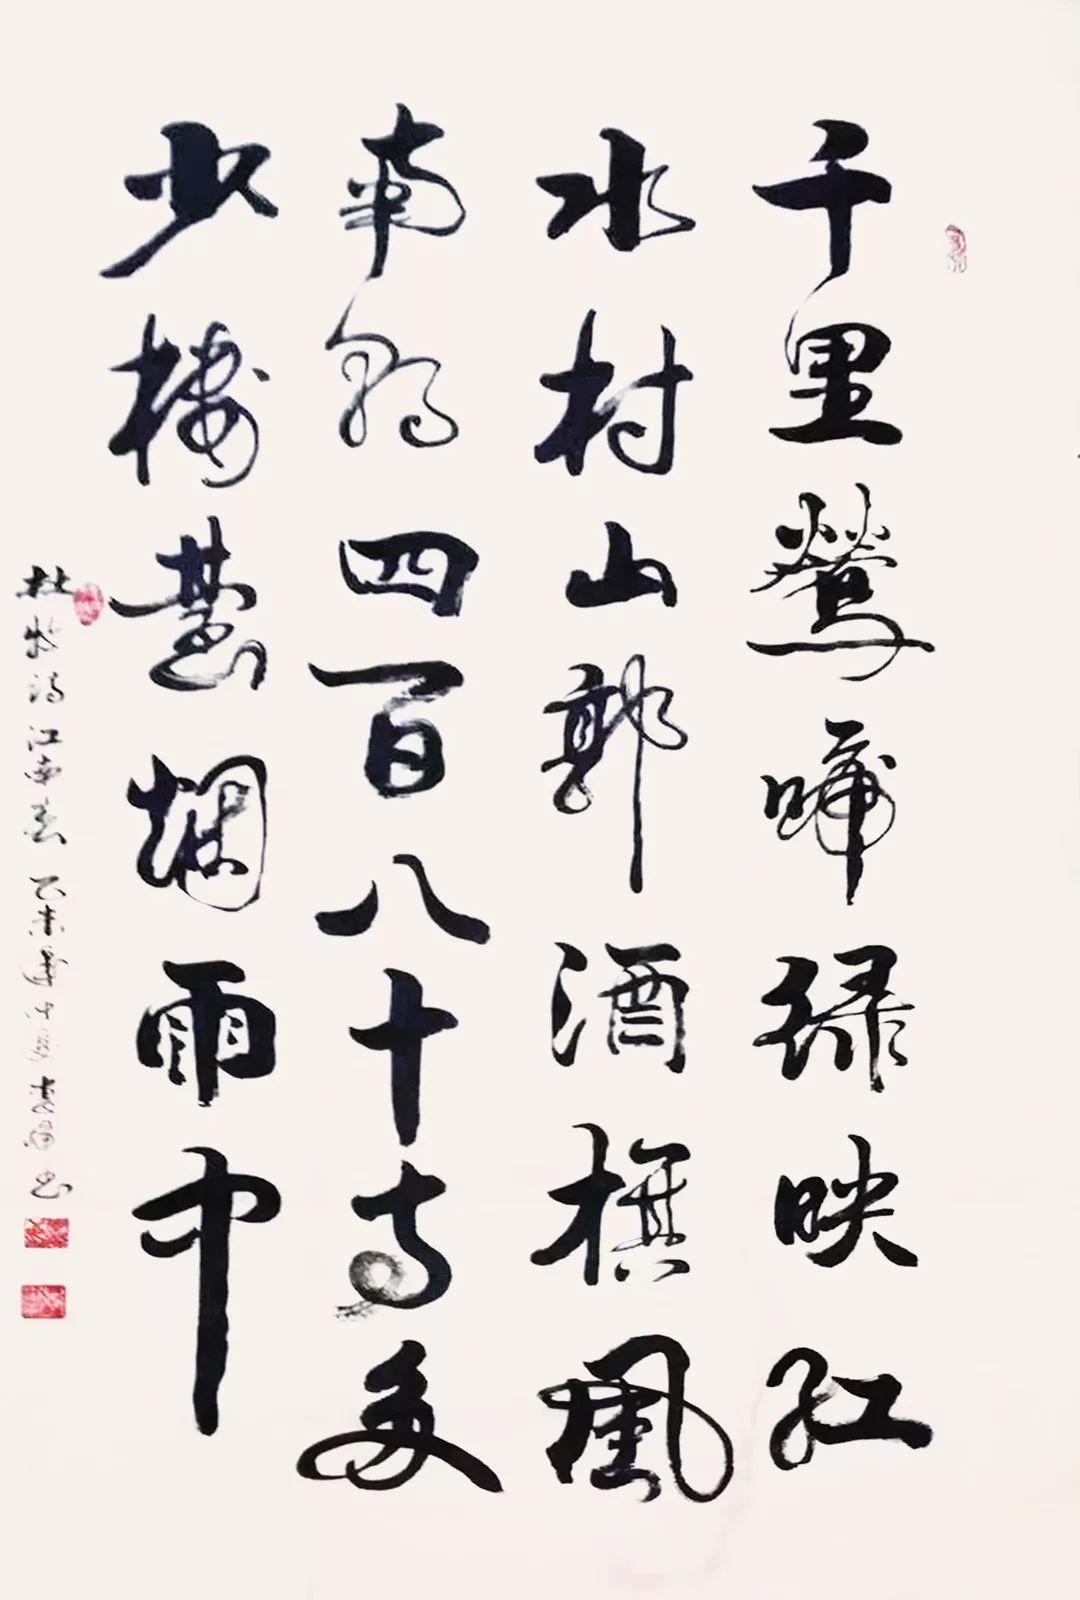 千里鶯啼緑映红
水村山郭酒旗風
南朝四百八十寺多
少樓臺烟雨中
杜牧诗江南春 乙未年 书